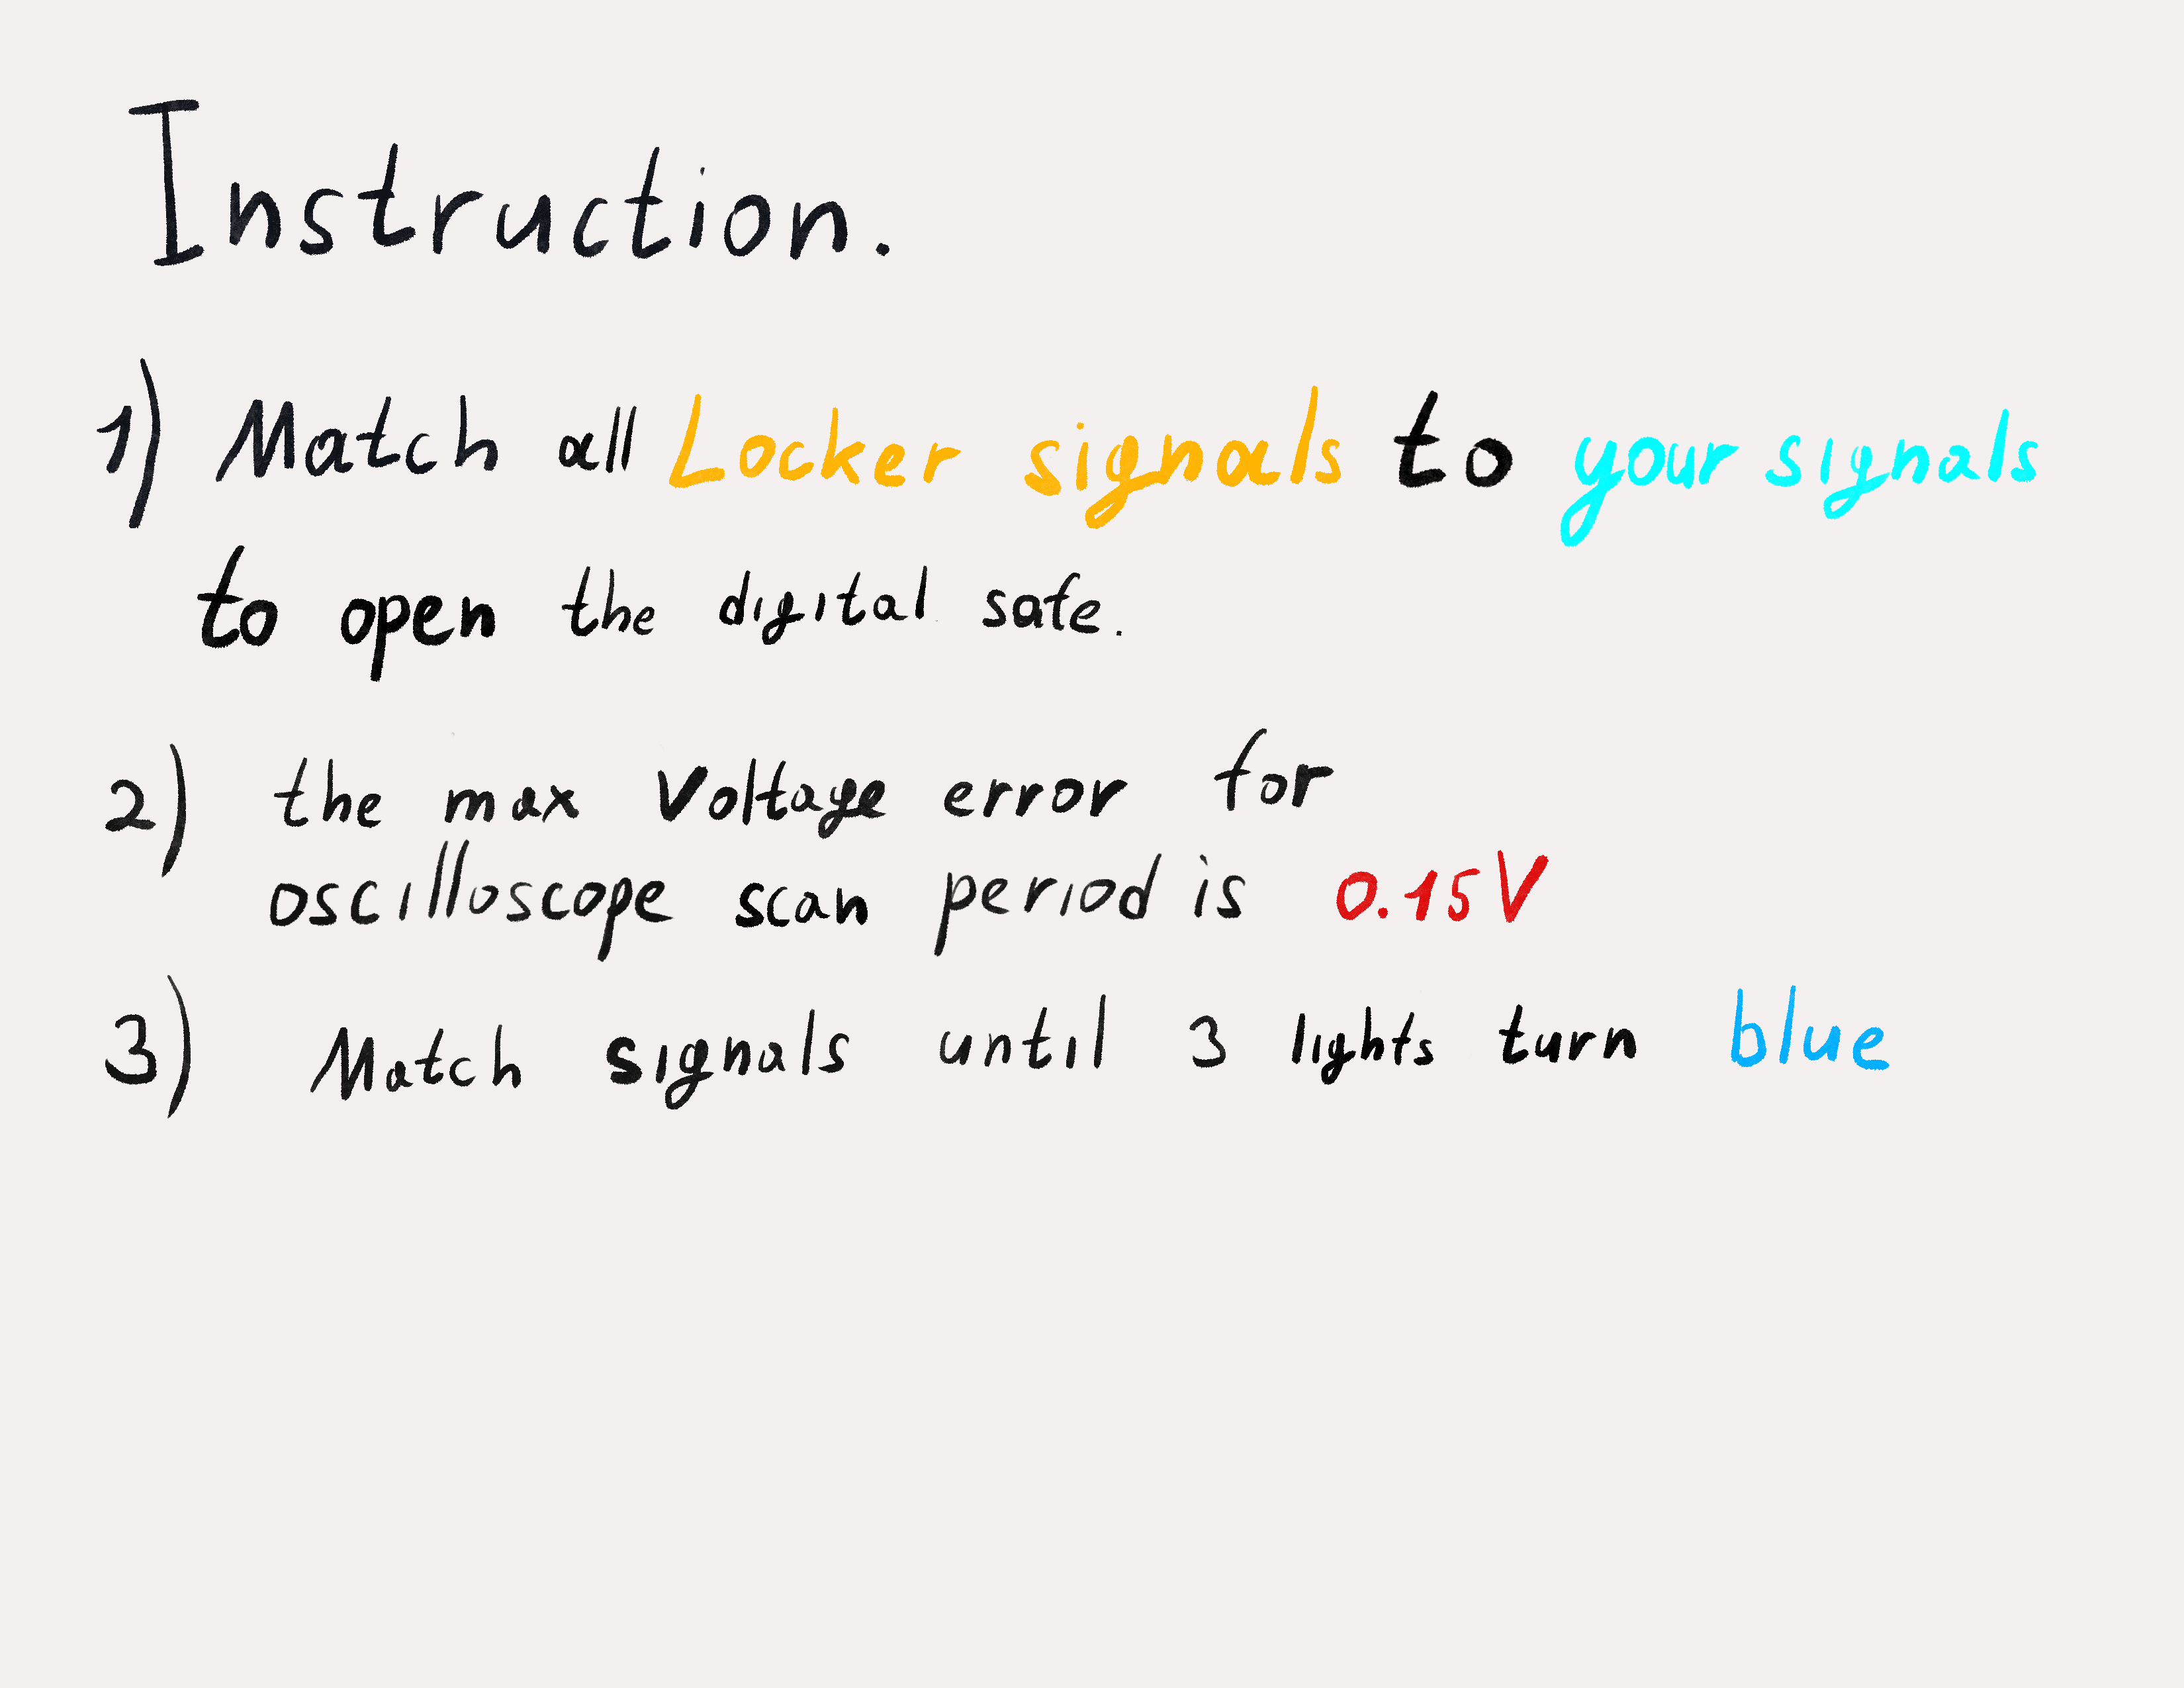 Instruction.
1) Match all Locker signals to your signals
to open the digital safe.
2) the max voltage error for
oscilloscope scan period is 0.15V
3) Match signals until 3 lights turn blue